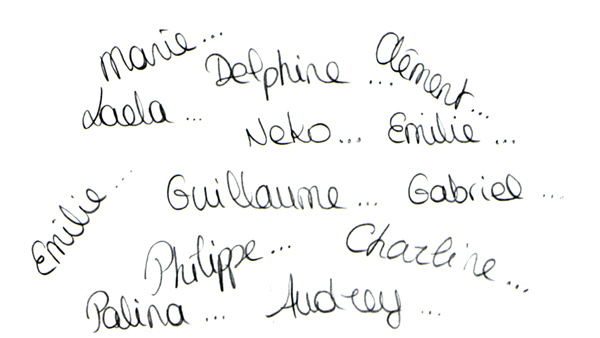 Marie...
Delphine ...
Clément...
Laela ...
Neko...
Emilie...
Emilie...
Guillaume ...
Gabriel ...
Philippe...
Charline...
Palina ...
Audrey ...